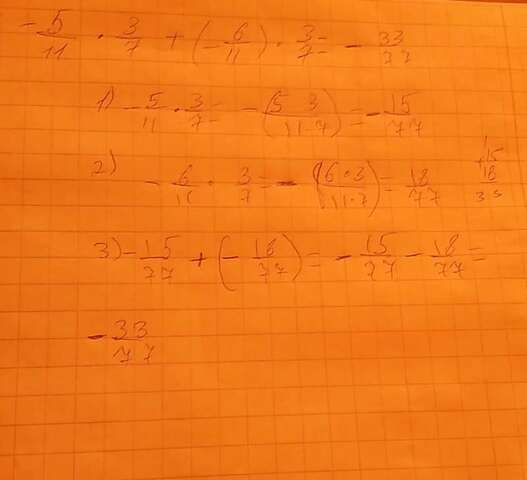 - 5/11 · 3/7 + (- 6/11) · 3/7 = - 33/77
1) - 5/11 · 3/7 = - (5 3 / 11·7) = - 15/77
2) - 6/11 · 3/7 = - (6·3 / 11·7) = 18/77
15
18
33
3) - 15/77 + (- 18/77) = - 15/77 - 18/77 =
- 33/77